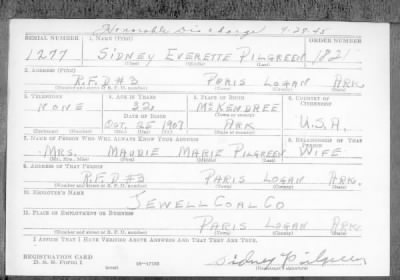 Honorable Discharge 9-29-45
SERIAL NUMBER 1. NAME (Print) ORDER NUMBER
1277 SIDNEY EVERETTE PILGREEN 1821
(First) (Middle) (Last)
2. ADDRESS (Print)
R.F.D #3 PARIS LOGAN ARK
(Number and street or R. F. D. number) (Town) (County) (State)
3. TELEPHONE 4. AGE IN YEARS 5. PLACE OF BIRTH 6. COUNTRY OF CITIZENSHIP
NONE 32 McKENDREE
DATE OF BIRTH (Town or county)
OCT. 25 1907 ARK U.S.A.
(Exchange) (Number) (Mo.) (Day) (Yr.) (State or country)
7. NAME OF PERSON WHO WILL ALWAYS KNOW YOUR ADDRESS 8. RELATIONSHIP OF THAT PERSON
MRS. MAUDIE MARIE PILGREEN WIFE
(Mr., Mrs., Miss) (First) (Middle) (Last)
9. ADDRESS OF THAT PERSON
R.F.D #3 PARIS LOGAN ARK.
(Number and street or R. F. D. number) (Town) (County) (State)
10. EMPLOYER'S NAME
JEWELL COAL CO
11. PLACE OF EMPLOYMENT OR BUSINESS
PARIS LOGAN ARK.
(Number and street or R. F. D. number) (Town) (County) (State)
I AFFIRM THAT I HAVE VERIFIED ABOVE ANSWERS AND THAT THEY ARE TRUE.
REGISTRATION CARD
D. S. S. Form 1 16-17105 Sidney Pilgreen
(Registrant's signature)